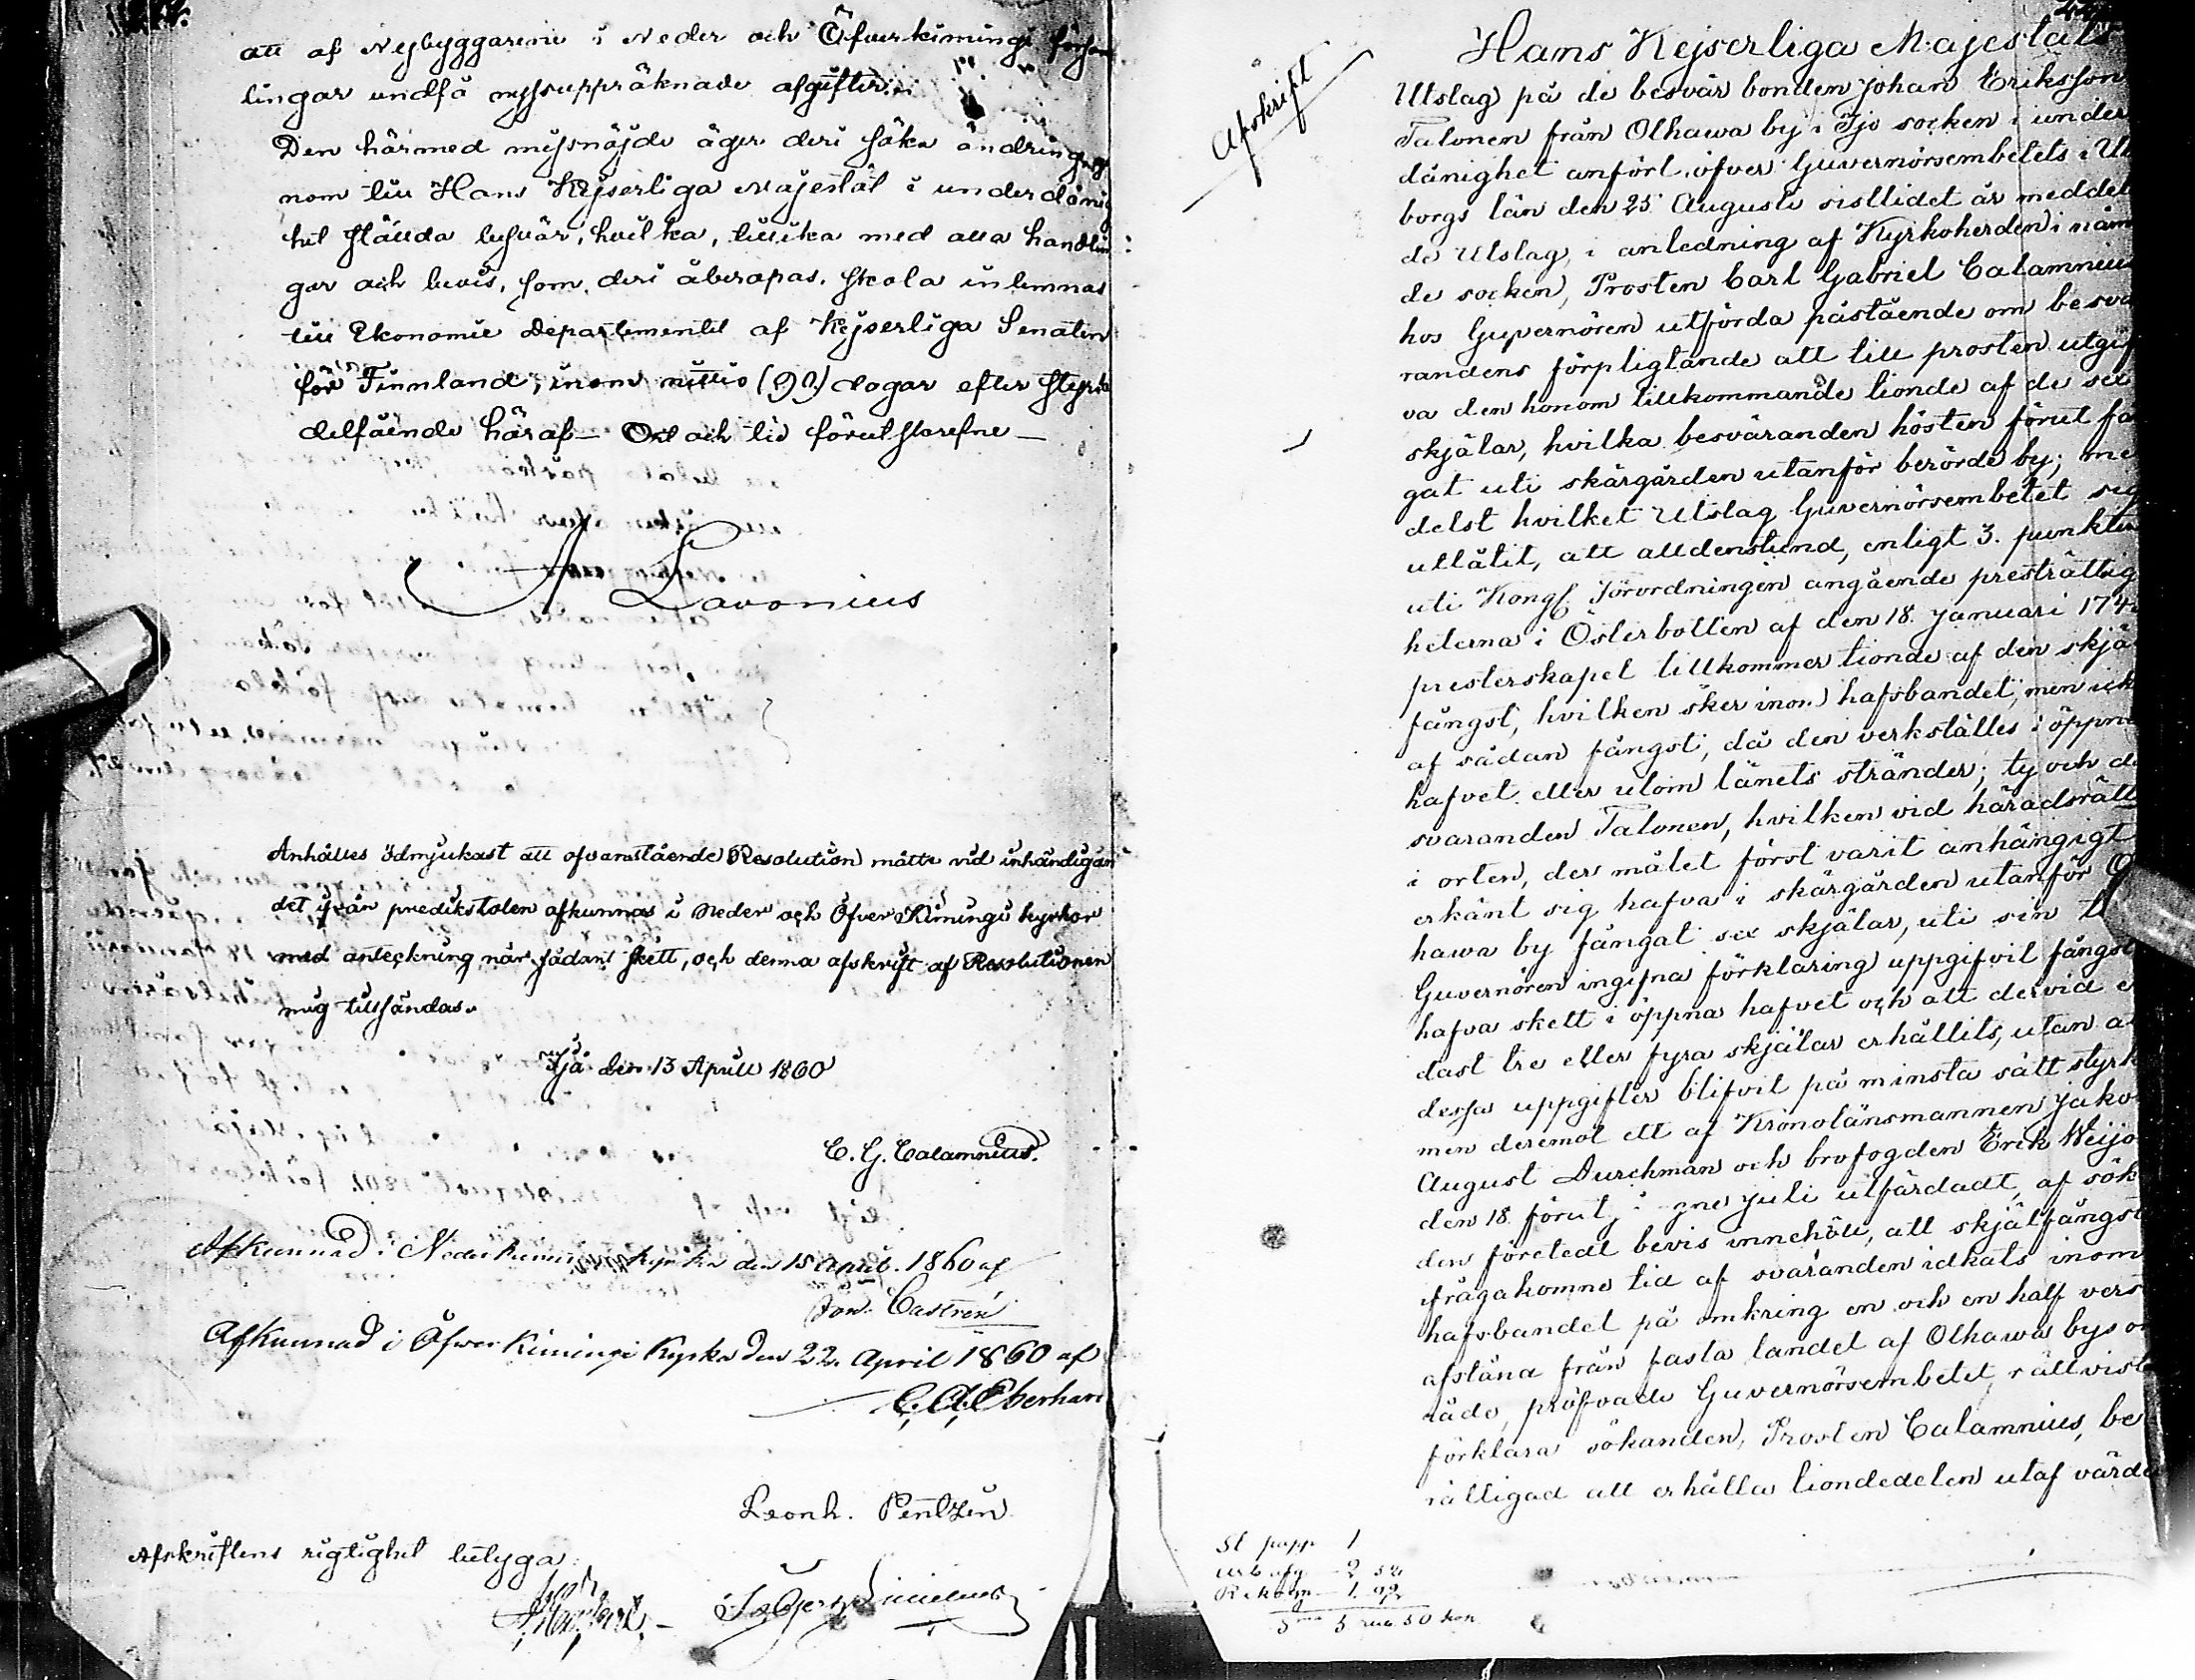 att af Nybyggarene i Neder och Öfverkiminge försam
lingar undfå nyssuppräknade afgifter.
Den härmed missnöjde äger deri söka ändring ge
nom till Hans Kejserliga Majestät i underdånig
het ställda besvär, hvilka, tillika med alla handlin
gar och bevis, som deri åberopas, skola inlemnas
till Ekonomie Departementet af Kejserliga Senaten
för Finnland, inom nittio (90) dagar efter styrkt
delfående häraf — Ort och tid förutskrefne —
A Lavonius
Anhålles ödmjukast att ofvanstående Resolution måtte vid inhändigan
det ifrån predikstolen afkunnas i Neder och Öfver Kiminge kyrkor
med anteckning när sådant skett, och denna afskrift af Resolutionen
mig tillsändas.
Ijå den 13 April 1860
C. G. Calamnius.
Afkunnad i Nederkiminge kyrka den 15 April 1860 af
Jon. Castrén
Afkunnad i Öfver Kiminge Kyrka den 22. April 1860 af
C. A. Eberhard
Leonh. Pentzin
Afskriftens rigtighet betyga:
Afskrift
Hans Kejserliga Majestäts
Utslag på de besvär bonden Johan Eriksson
Talonen från Olhawa by i Ijo socken i under
dånighet anfört öfver Guvernörsembetets i Ule
borgs län den 25 Augusti sistlidet år meddela
de Utslag, i anledning af Kyrkoherden i nämn
de socken, Prosten Carl Gabriel Calamnius
hos Guvernören utförda påstående om besvä
randens förpligtande att till prosten utgif
va den honom tillkommande tionde af de sex
skjälar, hvilka besväranden hösten förut fån
gat uti skärgården utanför berörde by; me
delst hvilket Utslag Guvernörsembetet sig
utlåtit, att alldenstund, enligt 3. punkten
uti Kongl. Förordningen angående presträttig
heterna i Österbotten af den 18. Januari 174
presterskapet tillkommer tionde af den skjäl
fångst, hvilken sker inom hafsbandet, men icke
af sådan fångst, då den verkställes i öppna
hafvet eller utom länets stränder; ty och då
svaranden Talonen, hvilken vid häradsrätten
i orten, der målet först varit anhängigt
erkänt sig hafva i skärgården utanför Ol
hawa by fångat sex skjälar, uti sin till
Guvernören ingifna förklaring uppgifvit fångst
hafva skett i öppna hafvet och att dervid en
dast tre eller fyra skjälar erhållits, utan att
dessa uppgifter blifvit på minsta sätt styrkt
men deremot ett af Kronolänsmannen Jakob
August Durchman och brofogden Erik Weijo
den 18. förut i gne Juli utfärdadt, af sökan
den företedt bevis innehöll, att skjälfångst
ifrågakomne tid af svaranden idkats inom
hafsbandet på omkring en och en half verst
afstånd från fasta landet af Olhawa bys om
råde, pröfvade Guvernörsembetet rättvist
förklara sökanden, Prosten Calamnius, be
rättigad att erhålla tiondedelen utaf värde
St papp 1
Utslfg 2 52
Rekogn 1.92
S:ma 5 rub. 50 kop.